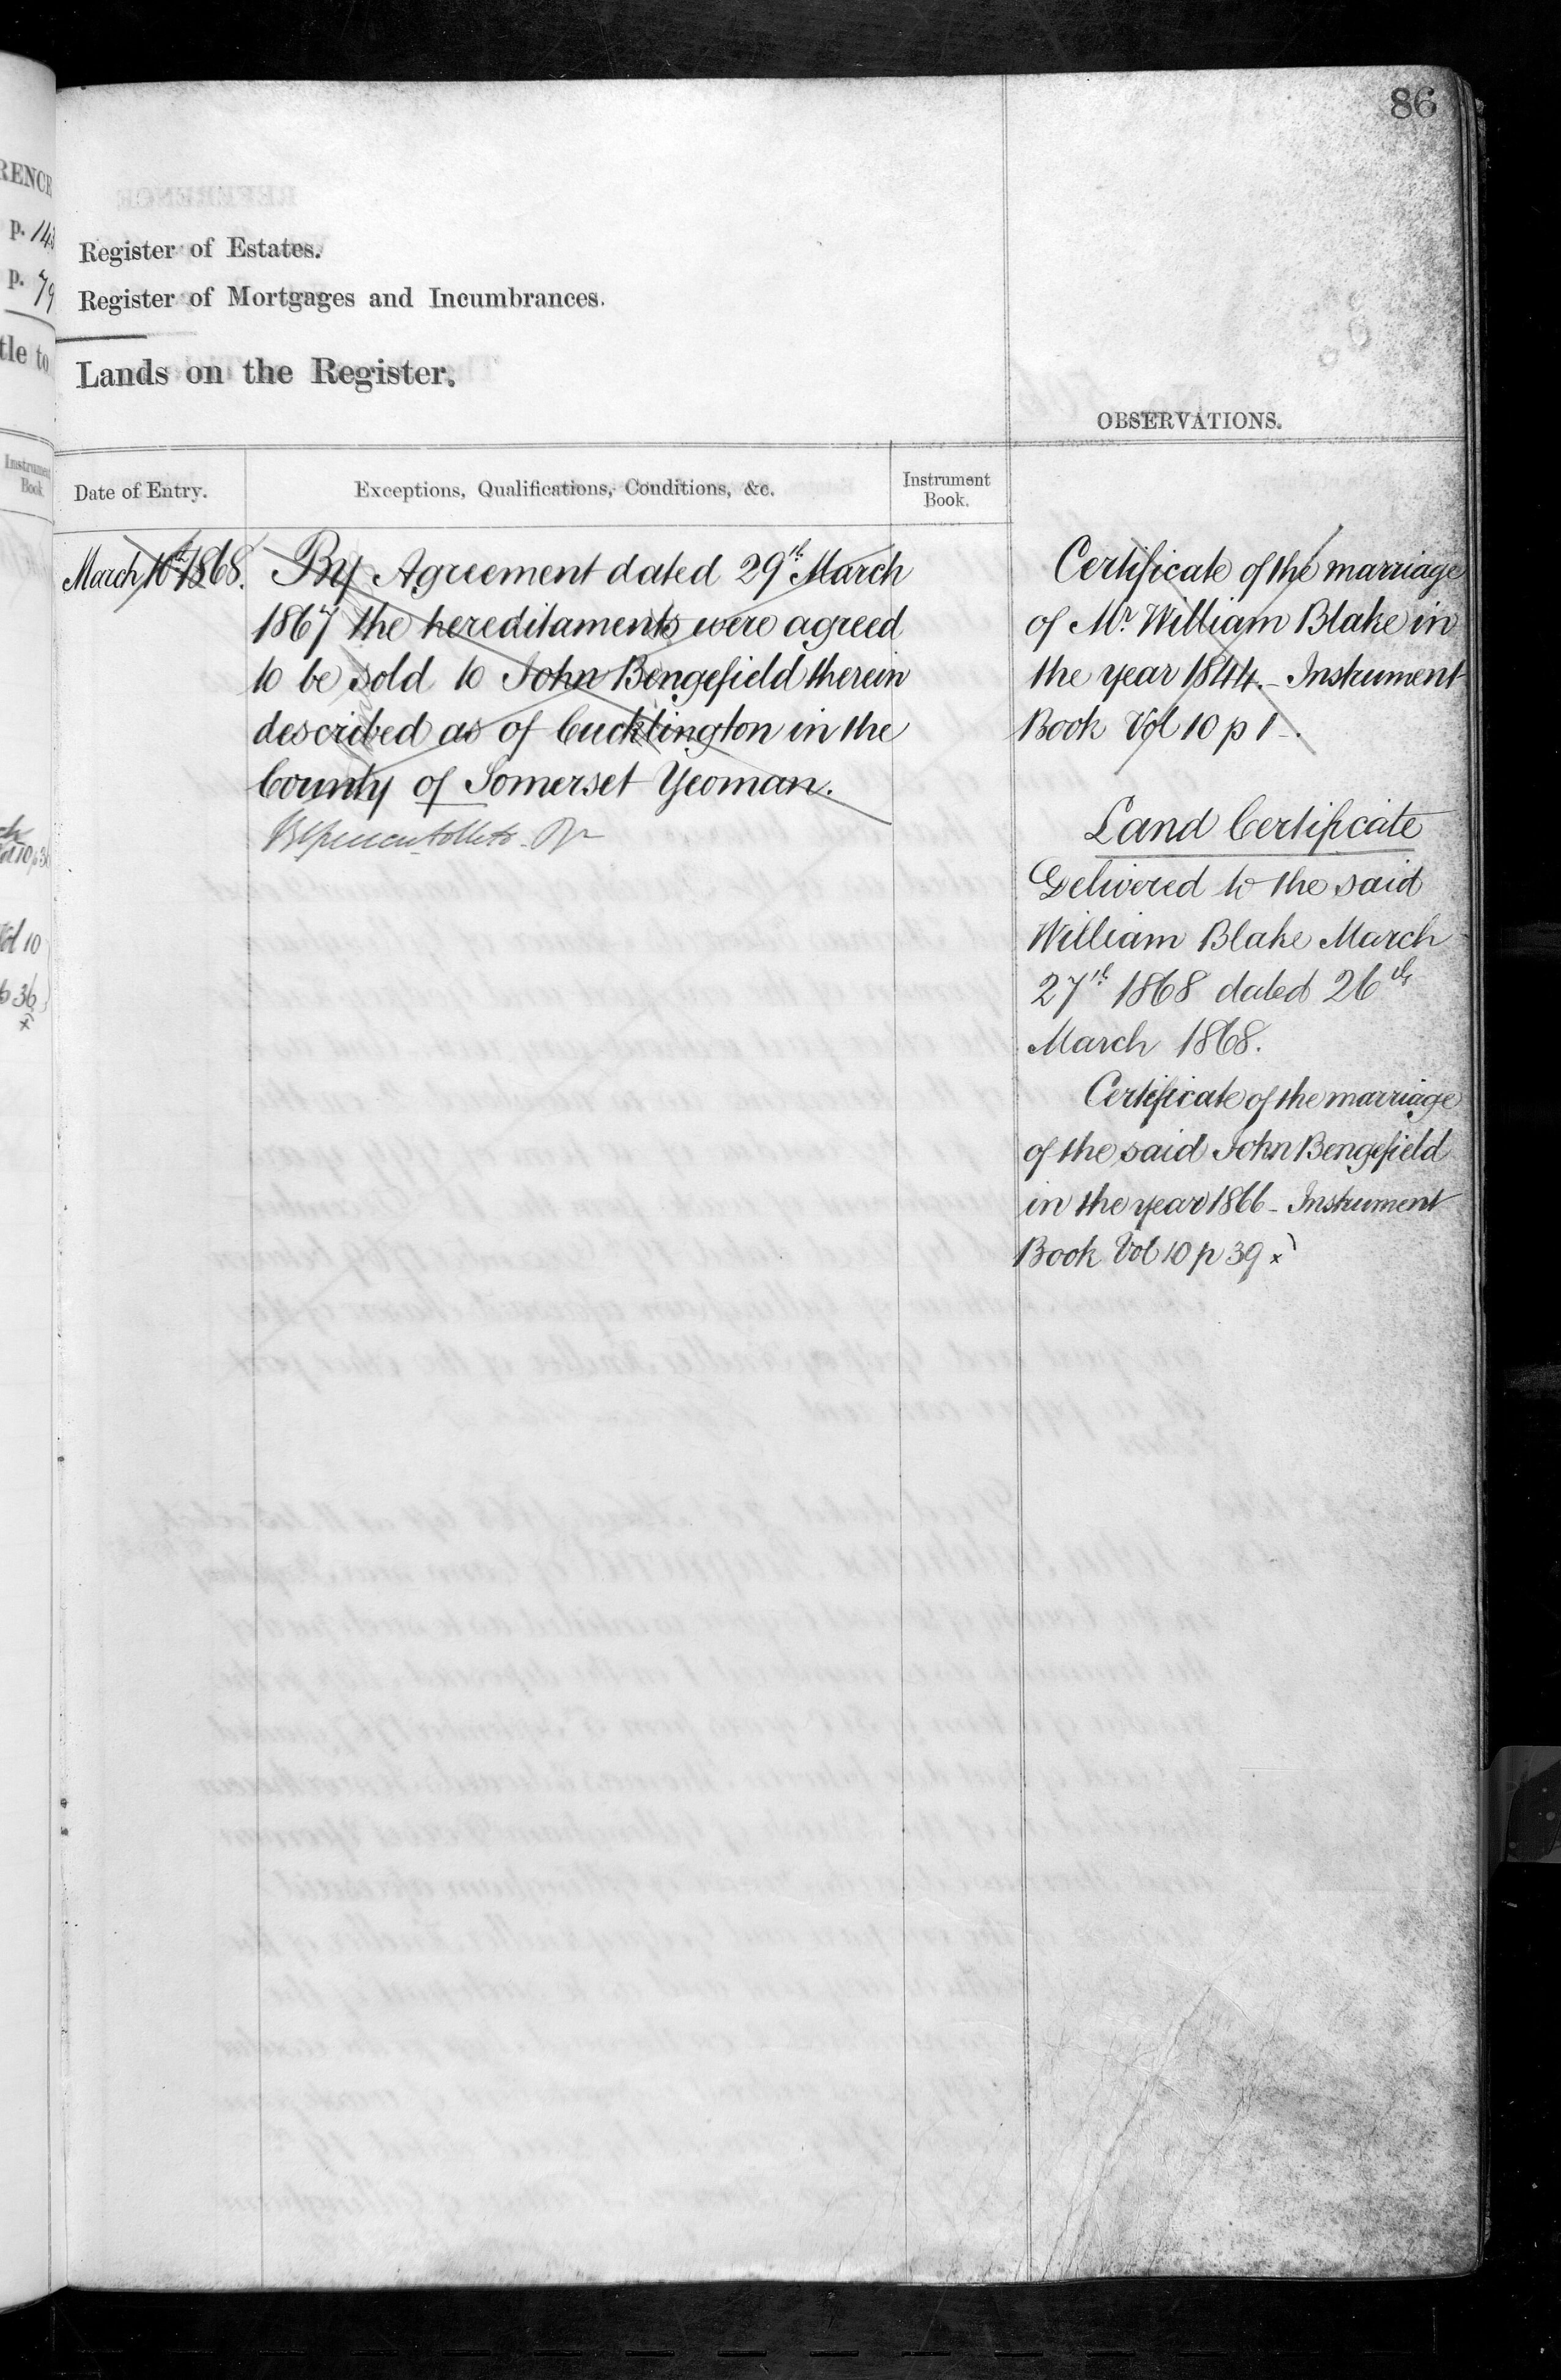 86
RENCE
p. 143
p. 79
tle to
Instrument
Book.
Vol 10
p 36
x
Register of Estates.
Register of Mortgages and Incumbrances.
Lands on the Register.
OBSERVATIONS.
Date of Entry.
Exceptions, Qualifications, Conditions, &c.
Instrument
Book.
March 10th 1868.
By Agreement dated 29th March
1867 the hereditaments were agreed
to be sold to John Bengefield therein
described as of Cucklington in the
County of Somerset Yeoman.
Certificate of the marriage
of Mr. William Blake in
the year 1844. - Instrument
Book Vol 10 p 1 - .
Land Certificate
Delivered to the said
William Blake March
27th 1868 dated 26th
March 1868.
Certificate of the marriage
of the said John Bengefield
in the year 1866 - Instrument
Book Vol 10 p 39 x